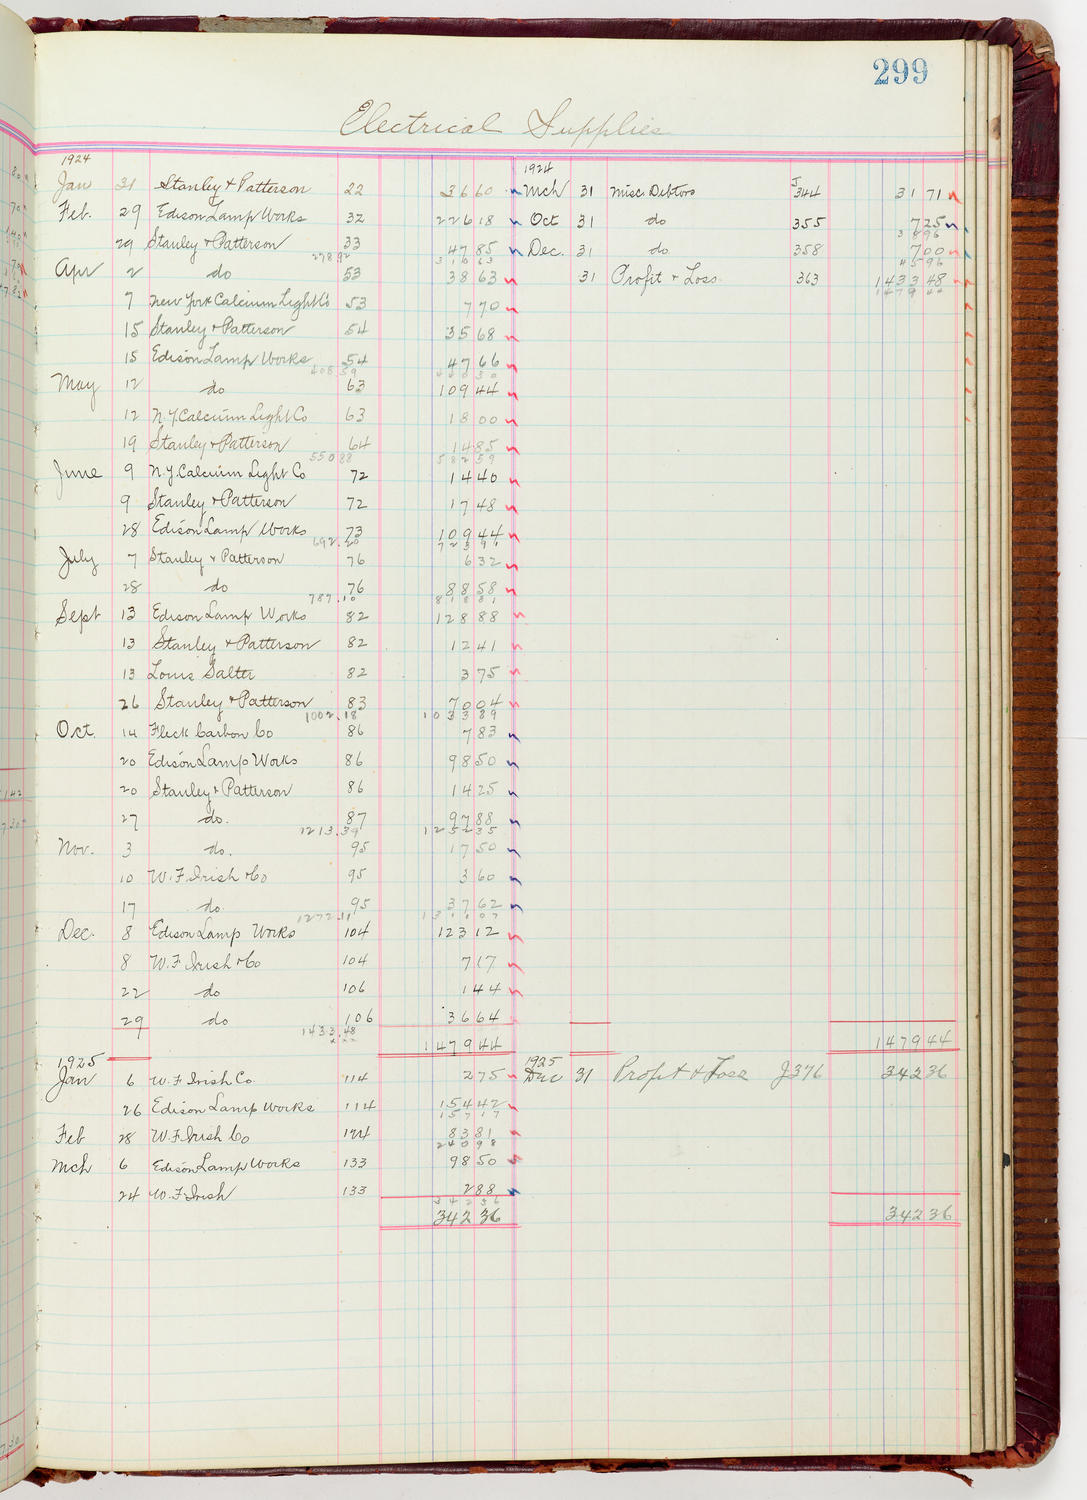 299
Electrical Supplies
1924
Jan 31 Stanley & Patterson 22 36 60
Feb. 29 Edison Lamp Works 32 226 18
29 Stanley & Patterson 33 47 85
278 92 316 63
Apr 2 do 53 38 63
7 New York Calcium Light Co 53 7 70
15 Stanley & Patterson 54 35 68
15 Edison Lamp Works 54 47 66
408 59 440 30
May 12 do 63 109 44
12 N.Y. Calcium Light Co 63 18 00
19 Stanley & Patterson 64 14 85
550 88 582 59
June 9 N.Y. Calcium Light Co 72 14 40
9 Stanley & Patterson 72 17 48
28 Edison Lamp Works 73 109 44
692.20 723 91
July 7 Stanley & Patterson 76 6 32
28 do 76 88 58
787.10 818 81
Sept 13 Edison Lamp Works 82 128 88
13 Stanley & Patterson 82 12 41
13 Louis Salter 82 3 75
26 Stanley & Patterson 83 70 04
1002.18 1033 89
Oct. 14 Fleck Carbon Co 86 7 83
20 Edison Lamp Works 86 98 50
20 Stanley & Patterson 86 14 25
27 do. 87 97 88
1213.39 1252 35
Nov. 3 do. 95 17 50
10 W. F. Irish & Co 95 3 60
17 do. 95 37 62
1272.11 1311 07
Dec. 8 Edison Lamp Works 104 123 12
8 W. F. Irish & Co 104 7 17
22 do 106 1 44
29 do 106 36 64
1433.48
1479 44
1925
Jan 6 W. F. Irish Co. 114 2 75
26 Edison Lamp Works 114 154 42
157 17
Feb 28 W. F. Irish Co 124 83 81
240 98
Mch 6 Edison Lamp Works 133 98 50
24 W. F. Irish 133 2 88
342 36
342 36
1924
Mch 31 Misc. Debtors J 344 31 71
Oct 31 do 355 7 25
38 96
Dec. 31 do. 358 7 00
45 96
31 Profit & Loss 363 1433 48
1479 44
1479 44
1925
Dec 31 Profit & Loss J376 342 36
342 36